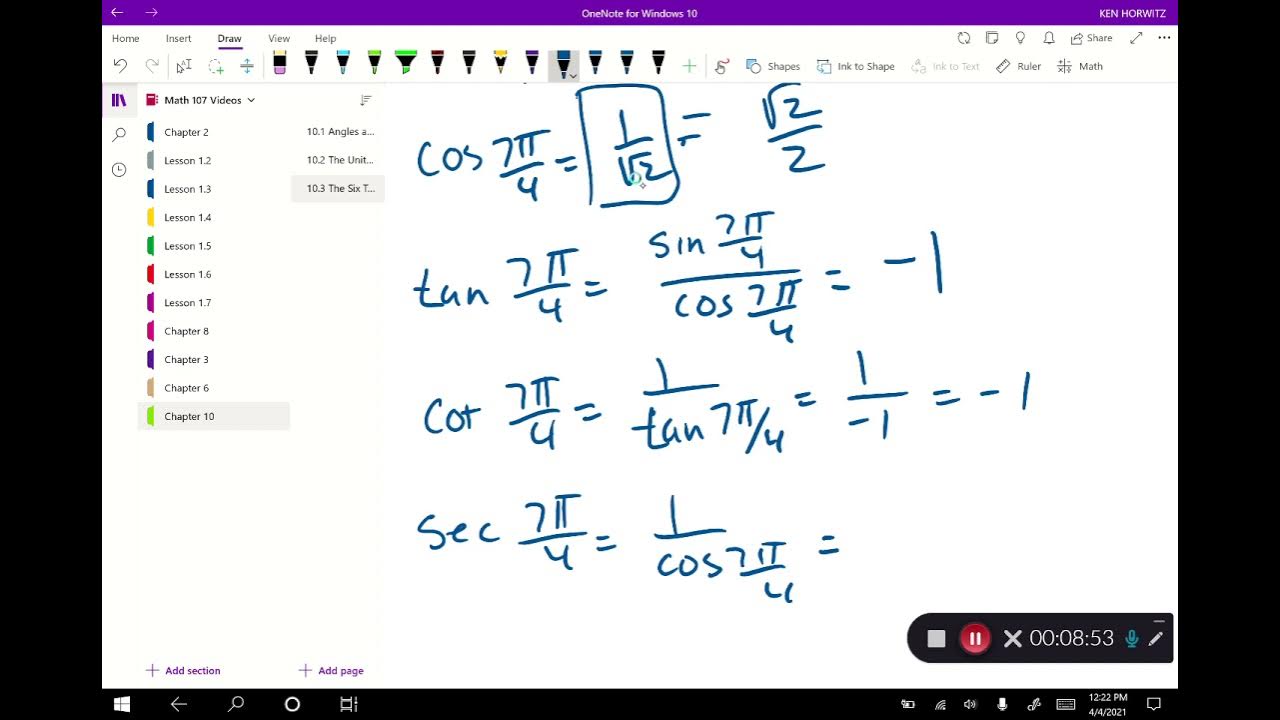 OneNote for Windows 10
KEN HORWITZ
Home Insert Draw View Help
Share
Shapes Ink to Shape Ink to Text Ruler Math
Math 107 Videos
Chapter 2
Lesson 1.2
Lesson 1.3
Lesson 1.4
Lesson 1.5
Lesson 1.6
Lesson 1.7
Chapter 8
Chapter 3
Chapter 6
Chapter 10
10.1 Angles a...
10.2 The Unit...
10.3 The Six T...
cos 7π/4 = 1/√2 = √2/2
tan 7π/4 = sin 7π/4 / cos 7π/4 = -1
cot 7π/4 = 1/tan 7π/4 = 1/-1 = -1
sec 7π/4 = 1/cos 7π/4 =
+ Add section
+ Add page
00:08:53
12:22 PM
4/4/2021